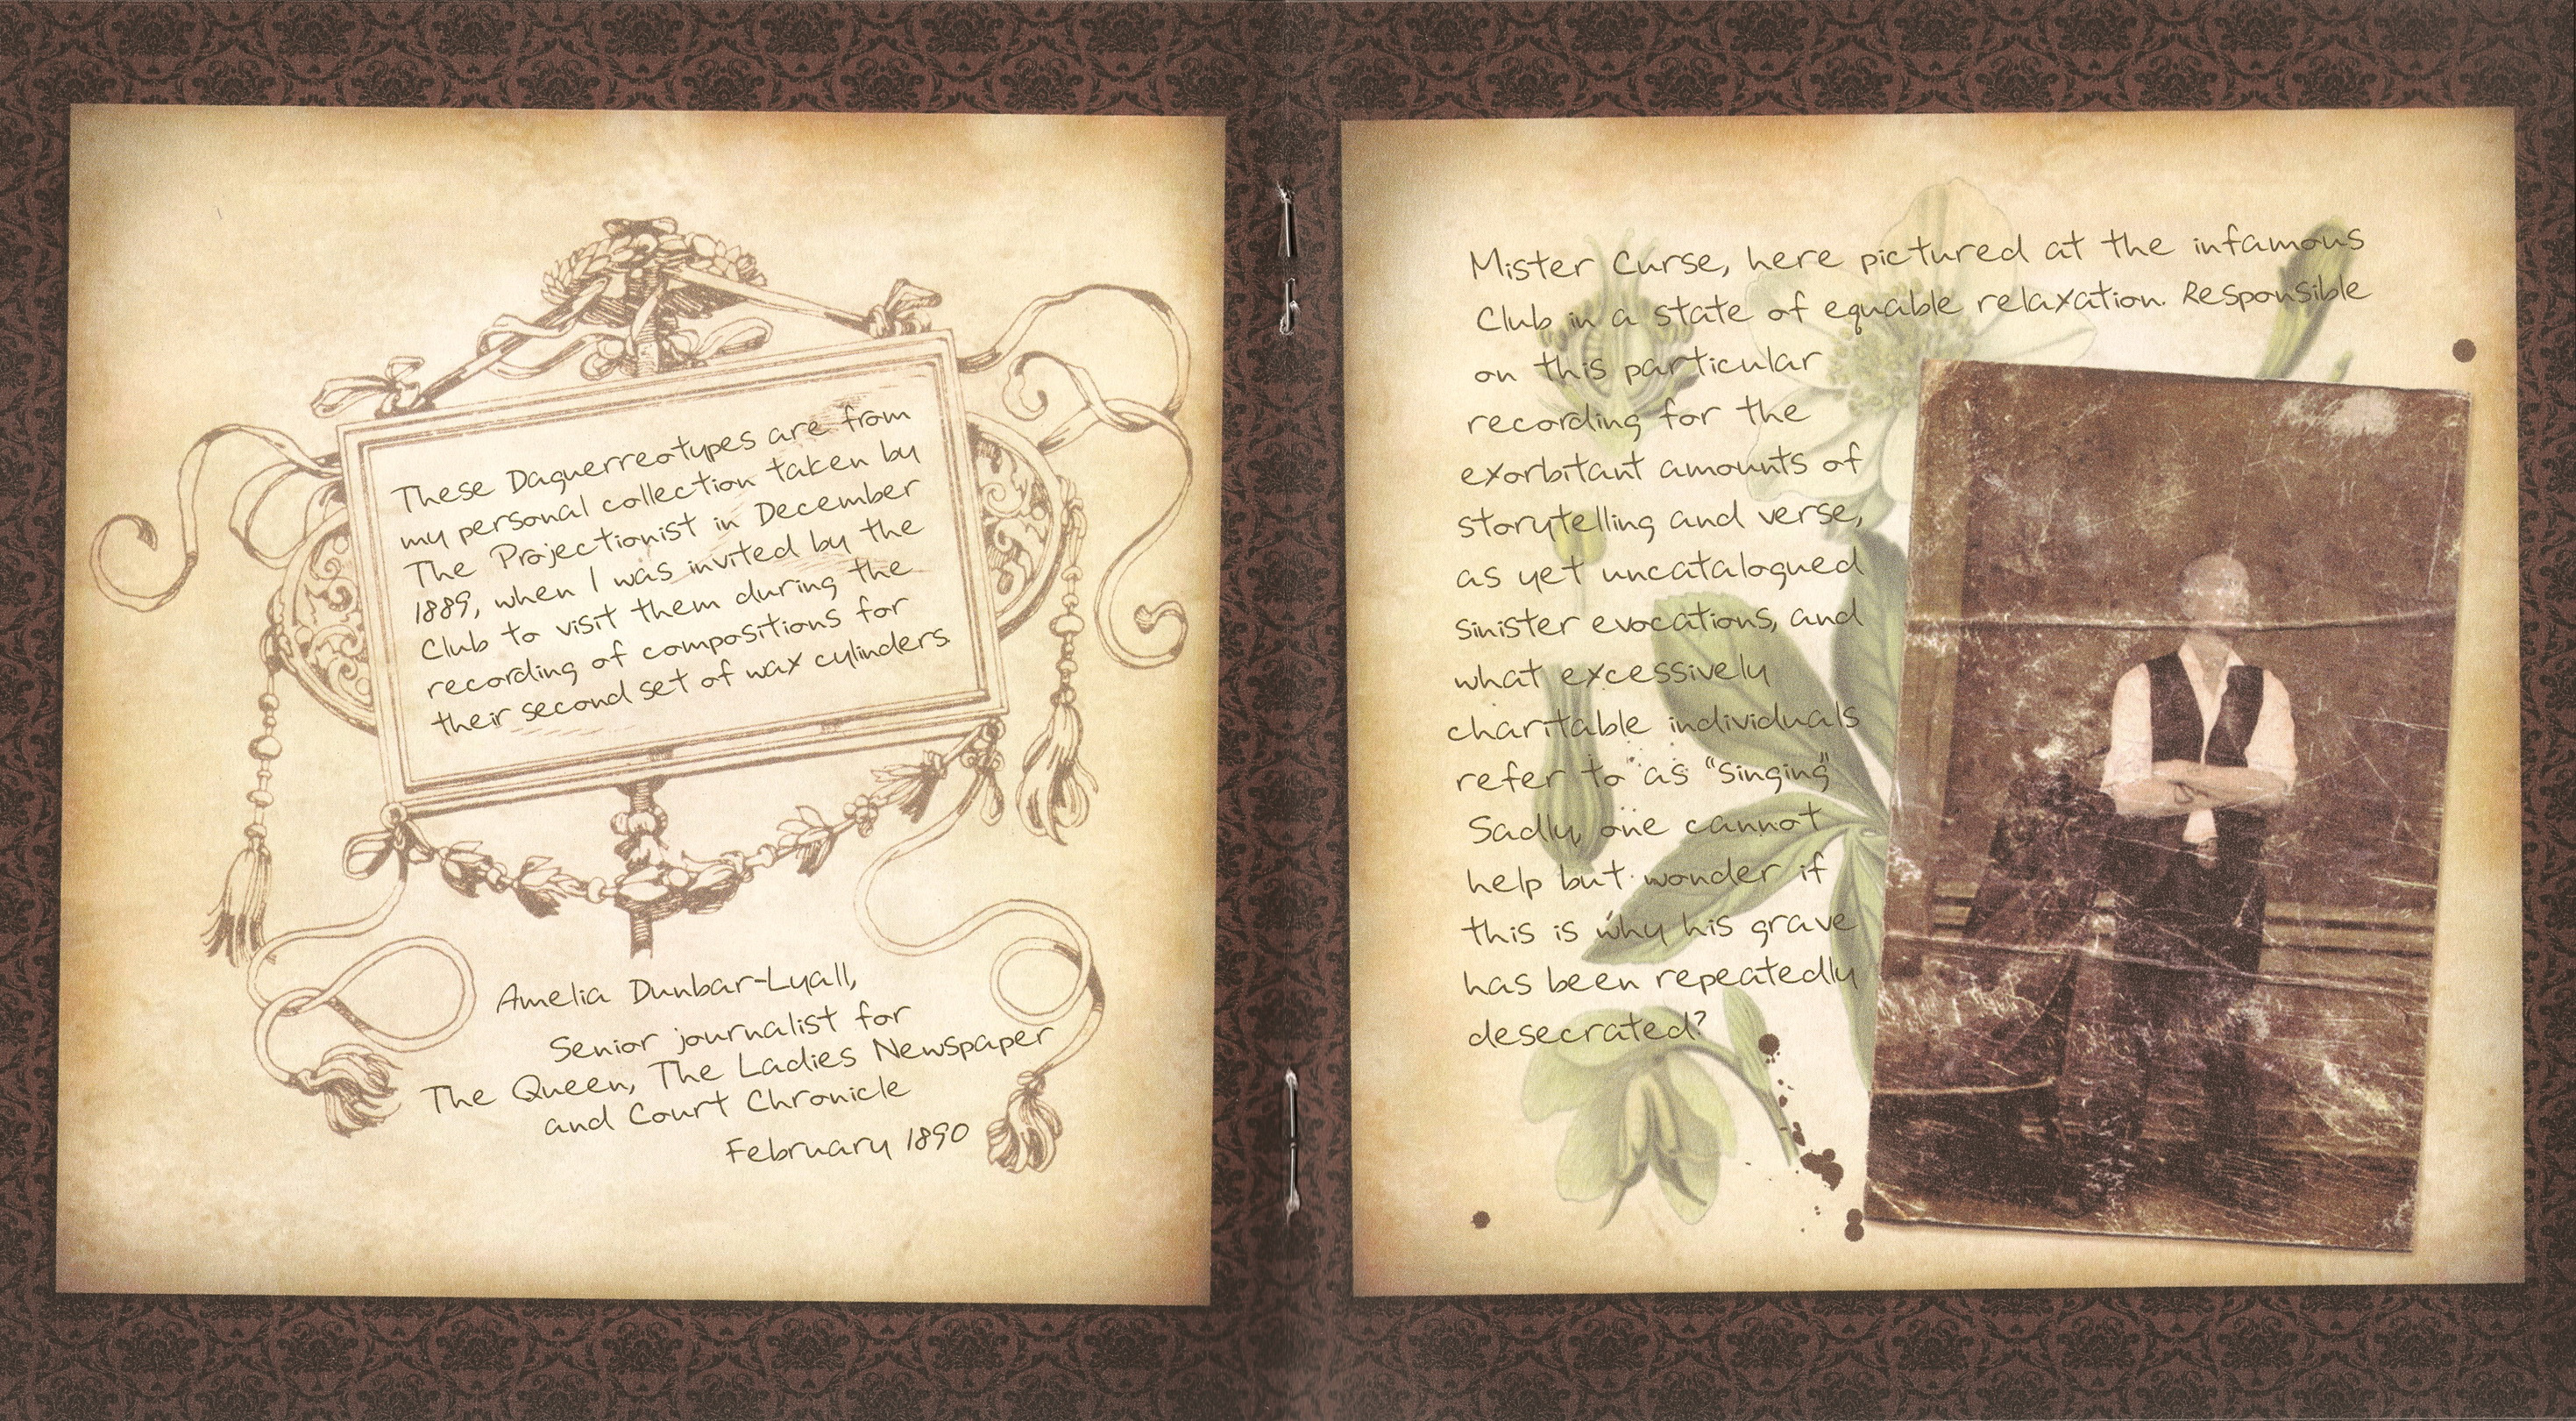 These Daguerreotypes are from
my personal collection taken by
The Projectionist in December
1889, when I was invited by the
Club to visit them during the
recording of compositions for
their second set of wax cylinders
Amelia Dunbar-Lyall,
Senior journalist for
The Queen, The Ladies Newspaper
and Court Chronicle
February 1890
Mister Curse, here pictured at the infamous
Club in a state of equable relaxation. Responsible
on this particular
recording for the
exorbitant amounts of
storytelling and verse,
as yet uncatalogued
sinister evocations, and
what excessively
charitable individuals
refer to as "singing"
Sadly, one cannot
help but wonder if
this is why his grave
has been repeatedly
desecrated?